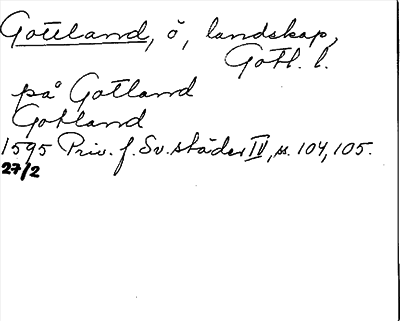 Gotland, ö, landskap,
Gotl. l.
på Gotland
Gotland
1595 Priv. f. Sv. städer IV, ss. 104, 105.
27/2